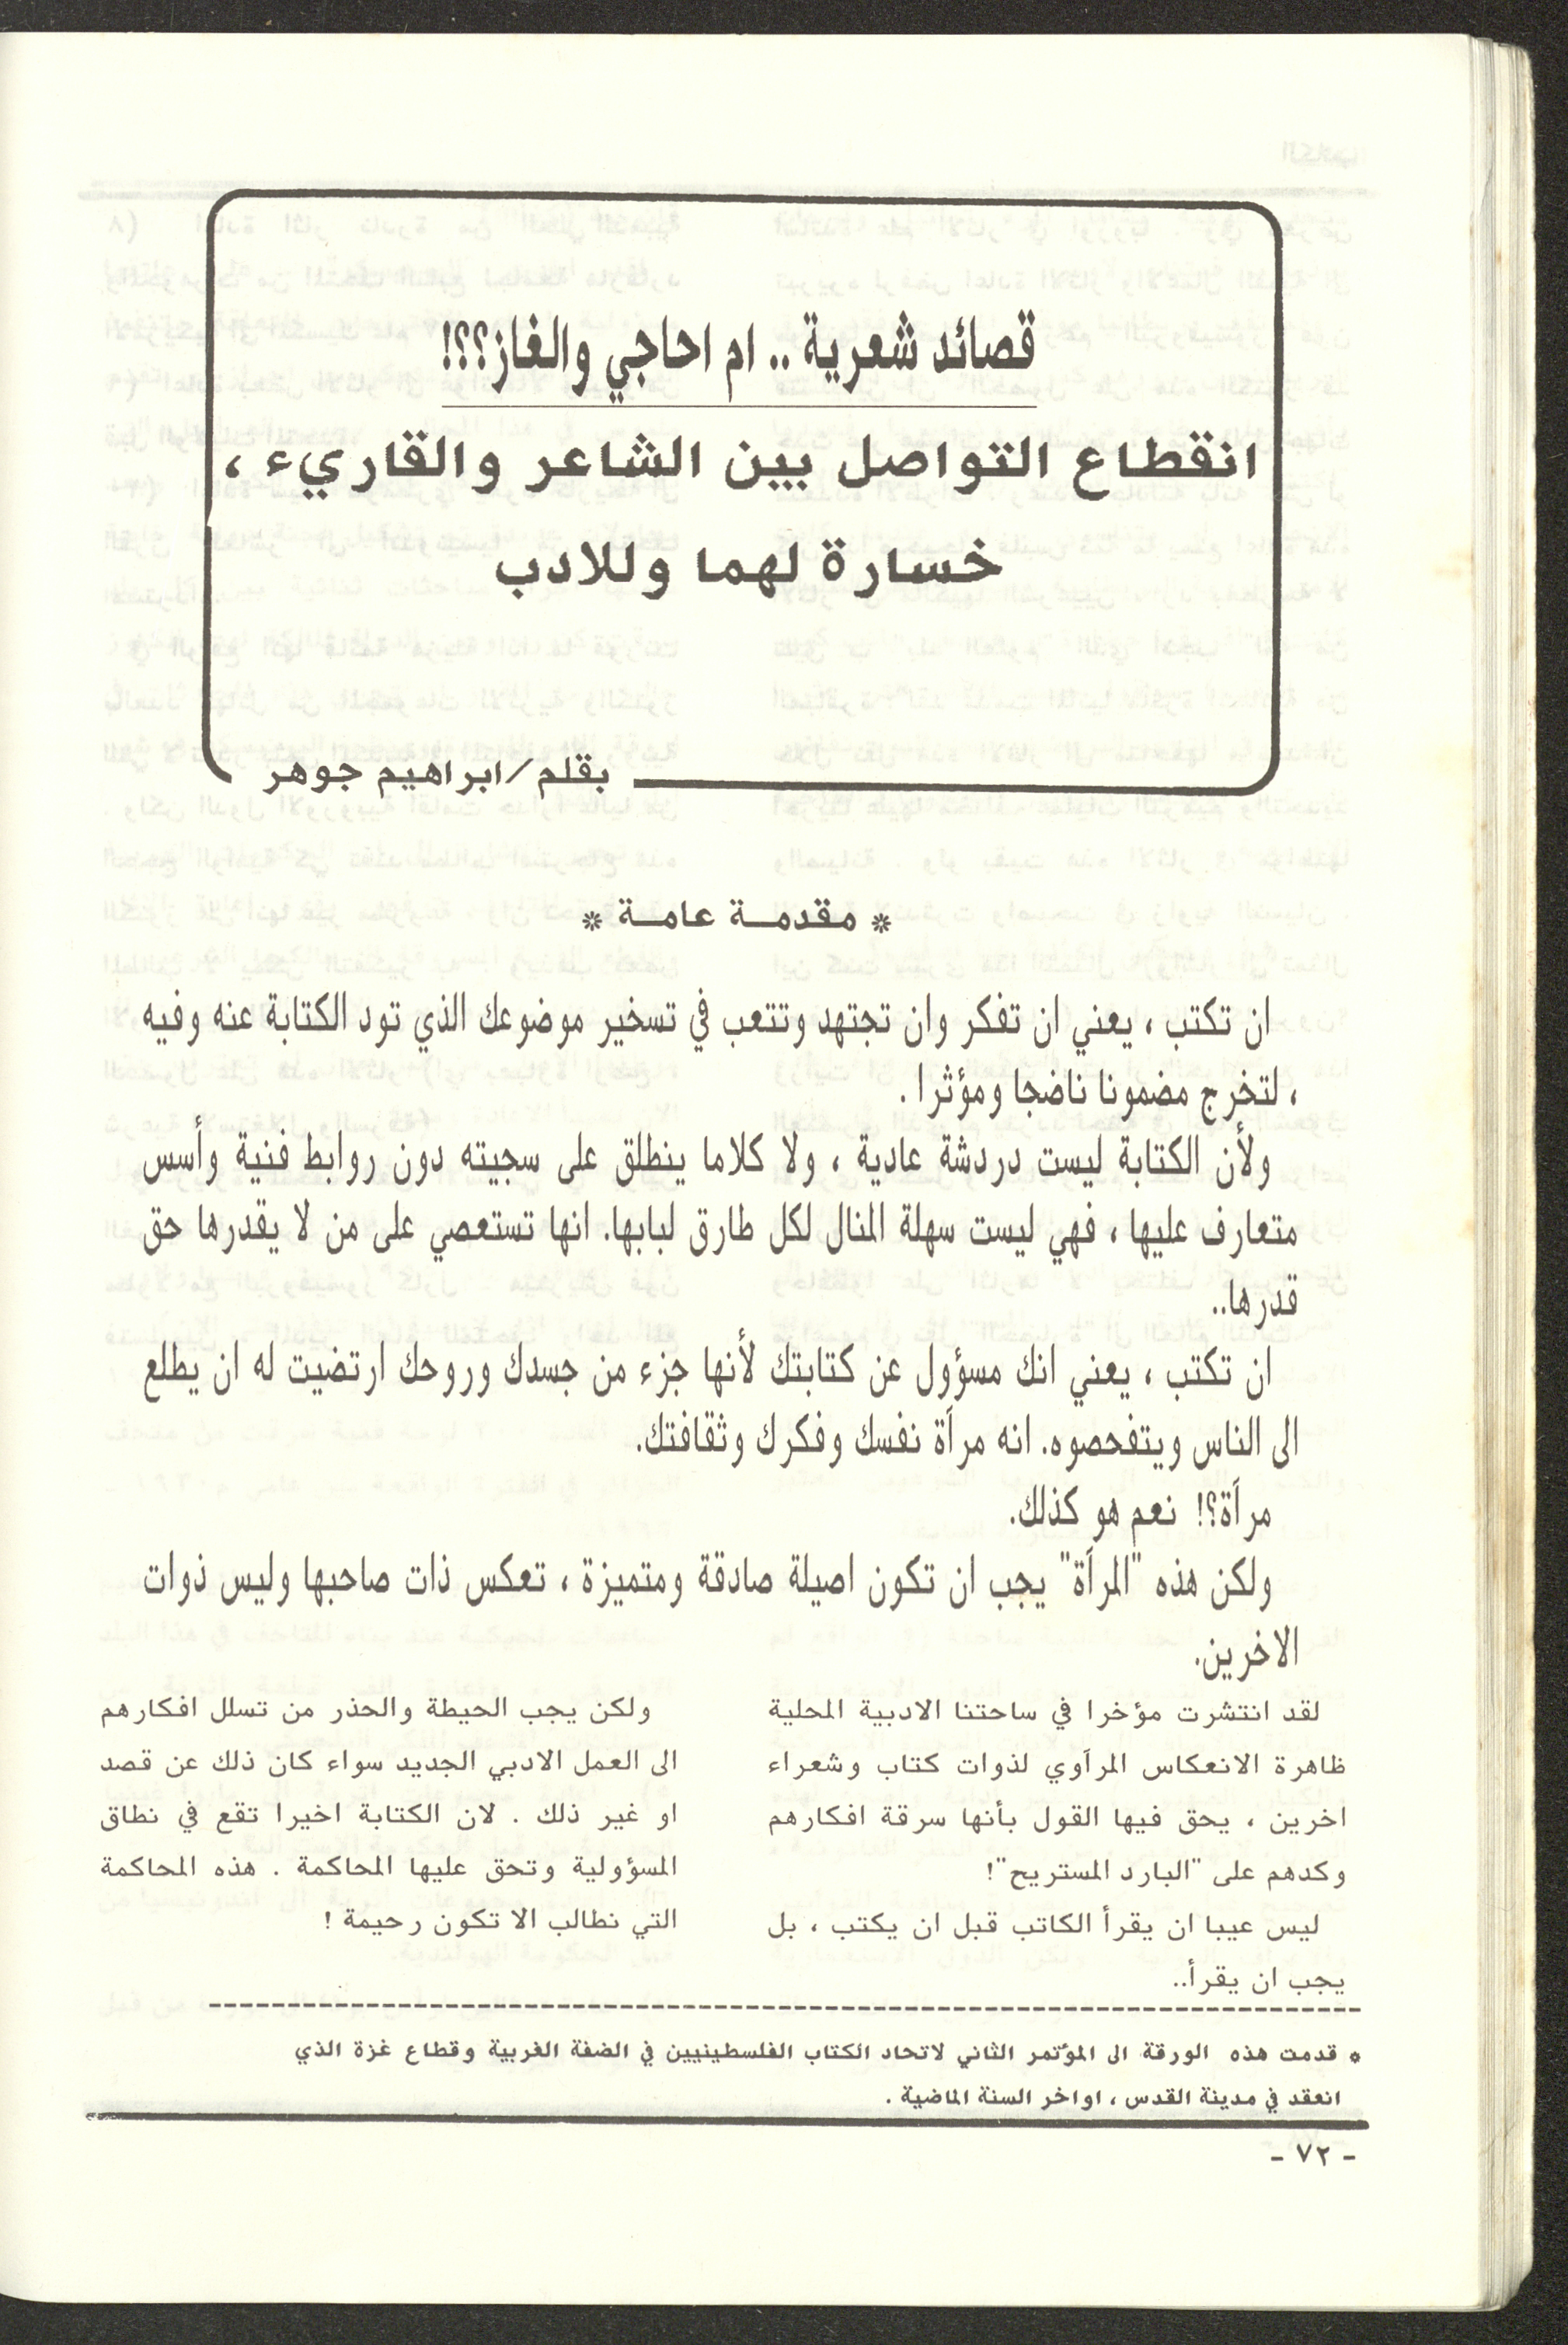 قصائد شعرية .. ام احاجي والغاز؟؟؟!
انقطاع التواصل بين الشاعر والقاريء ،
خسارة لهما وللادب
بقلم/ابراهيم جوهر
* مقدمة عامة *
ان تكتب ، يعني ان تفكر وان تجتهد وتتعب في تسخير موضوعك الذي تود الكتابة عنه وفيه
، لتخرج مضمونا ناضجا ومؤثرا .
ولأن الكتابة ليست دردشة عادية ، ولا كلاما ينطلق على سجيته دون روابط فنية وأسس
متعارف عليها ، فهي ليست سهلة المنال لكل طارق لبابها. انها تستعصي على من لا يقدرها حق
قدرها..
ان تكتب ، يعني انك مسؤول عن كتابتك لأنها جزء من جسدك وروحك ارتضيت له ان يطلع
الى الناس ويتفحصوه. انه مرآة نفسك وفكرك وثقافتك.
مرآة؟! نعم هو كذلك.
ولكن هذه "المرآة" يجب ان تكون اصيلة صادقة ومتميزة ، تعكس ذات صاحبها وليس ذوات
الاخرين.
لقد انتشرت مؤخرا في ساحتنا الادبية المحلية
ظاهرة الانعكاس المرآوي لذوات كتاب وشعراء
اخرين ، يحق فيها القول بأنها سرقة افكارهم
وكدهم على "البارد المستريح"!
ليس عيبا ان يقرأ الكاتب قبل ان يكتب ، بل
يجب ان يقرأ..
ولكن يجب الحيطة والحذر من تسلل افكارهم
الى العمل الادبي الجديد سواء كان ذلك عن قصد
او غير ذلك . لان الكتابة اخيرا تقع في نطاق
المسؤولية وتحق عليها المحاكمة . هذه المحاكمة
التي نطالب الا تكون رحيمة !
* قدمت هذه الورقة الى المؤتمر الثاني لاتحاد الكتاب الفلسطينيين في الضفة الغربية وقطاع غزة الذي
انعقد في مدينة القدس ، اواخر السنة الماضية .
- ٧٢ -